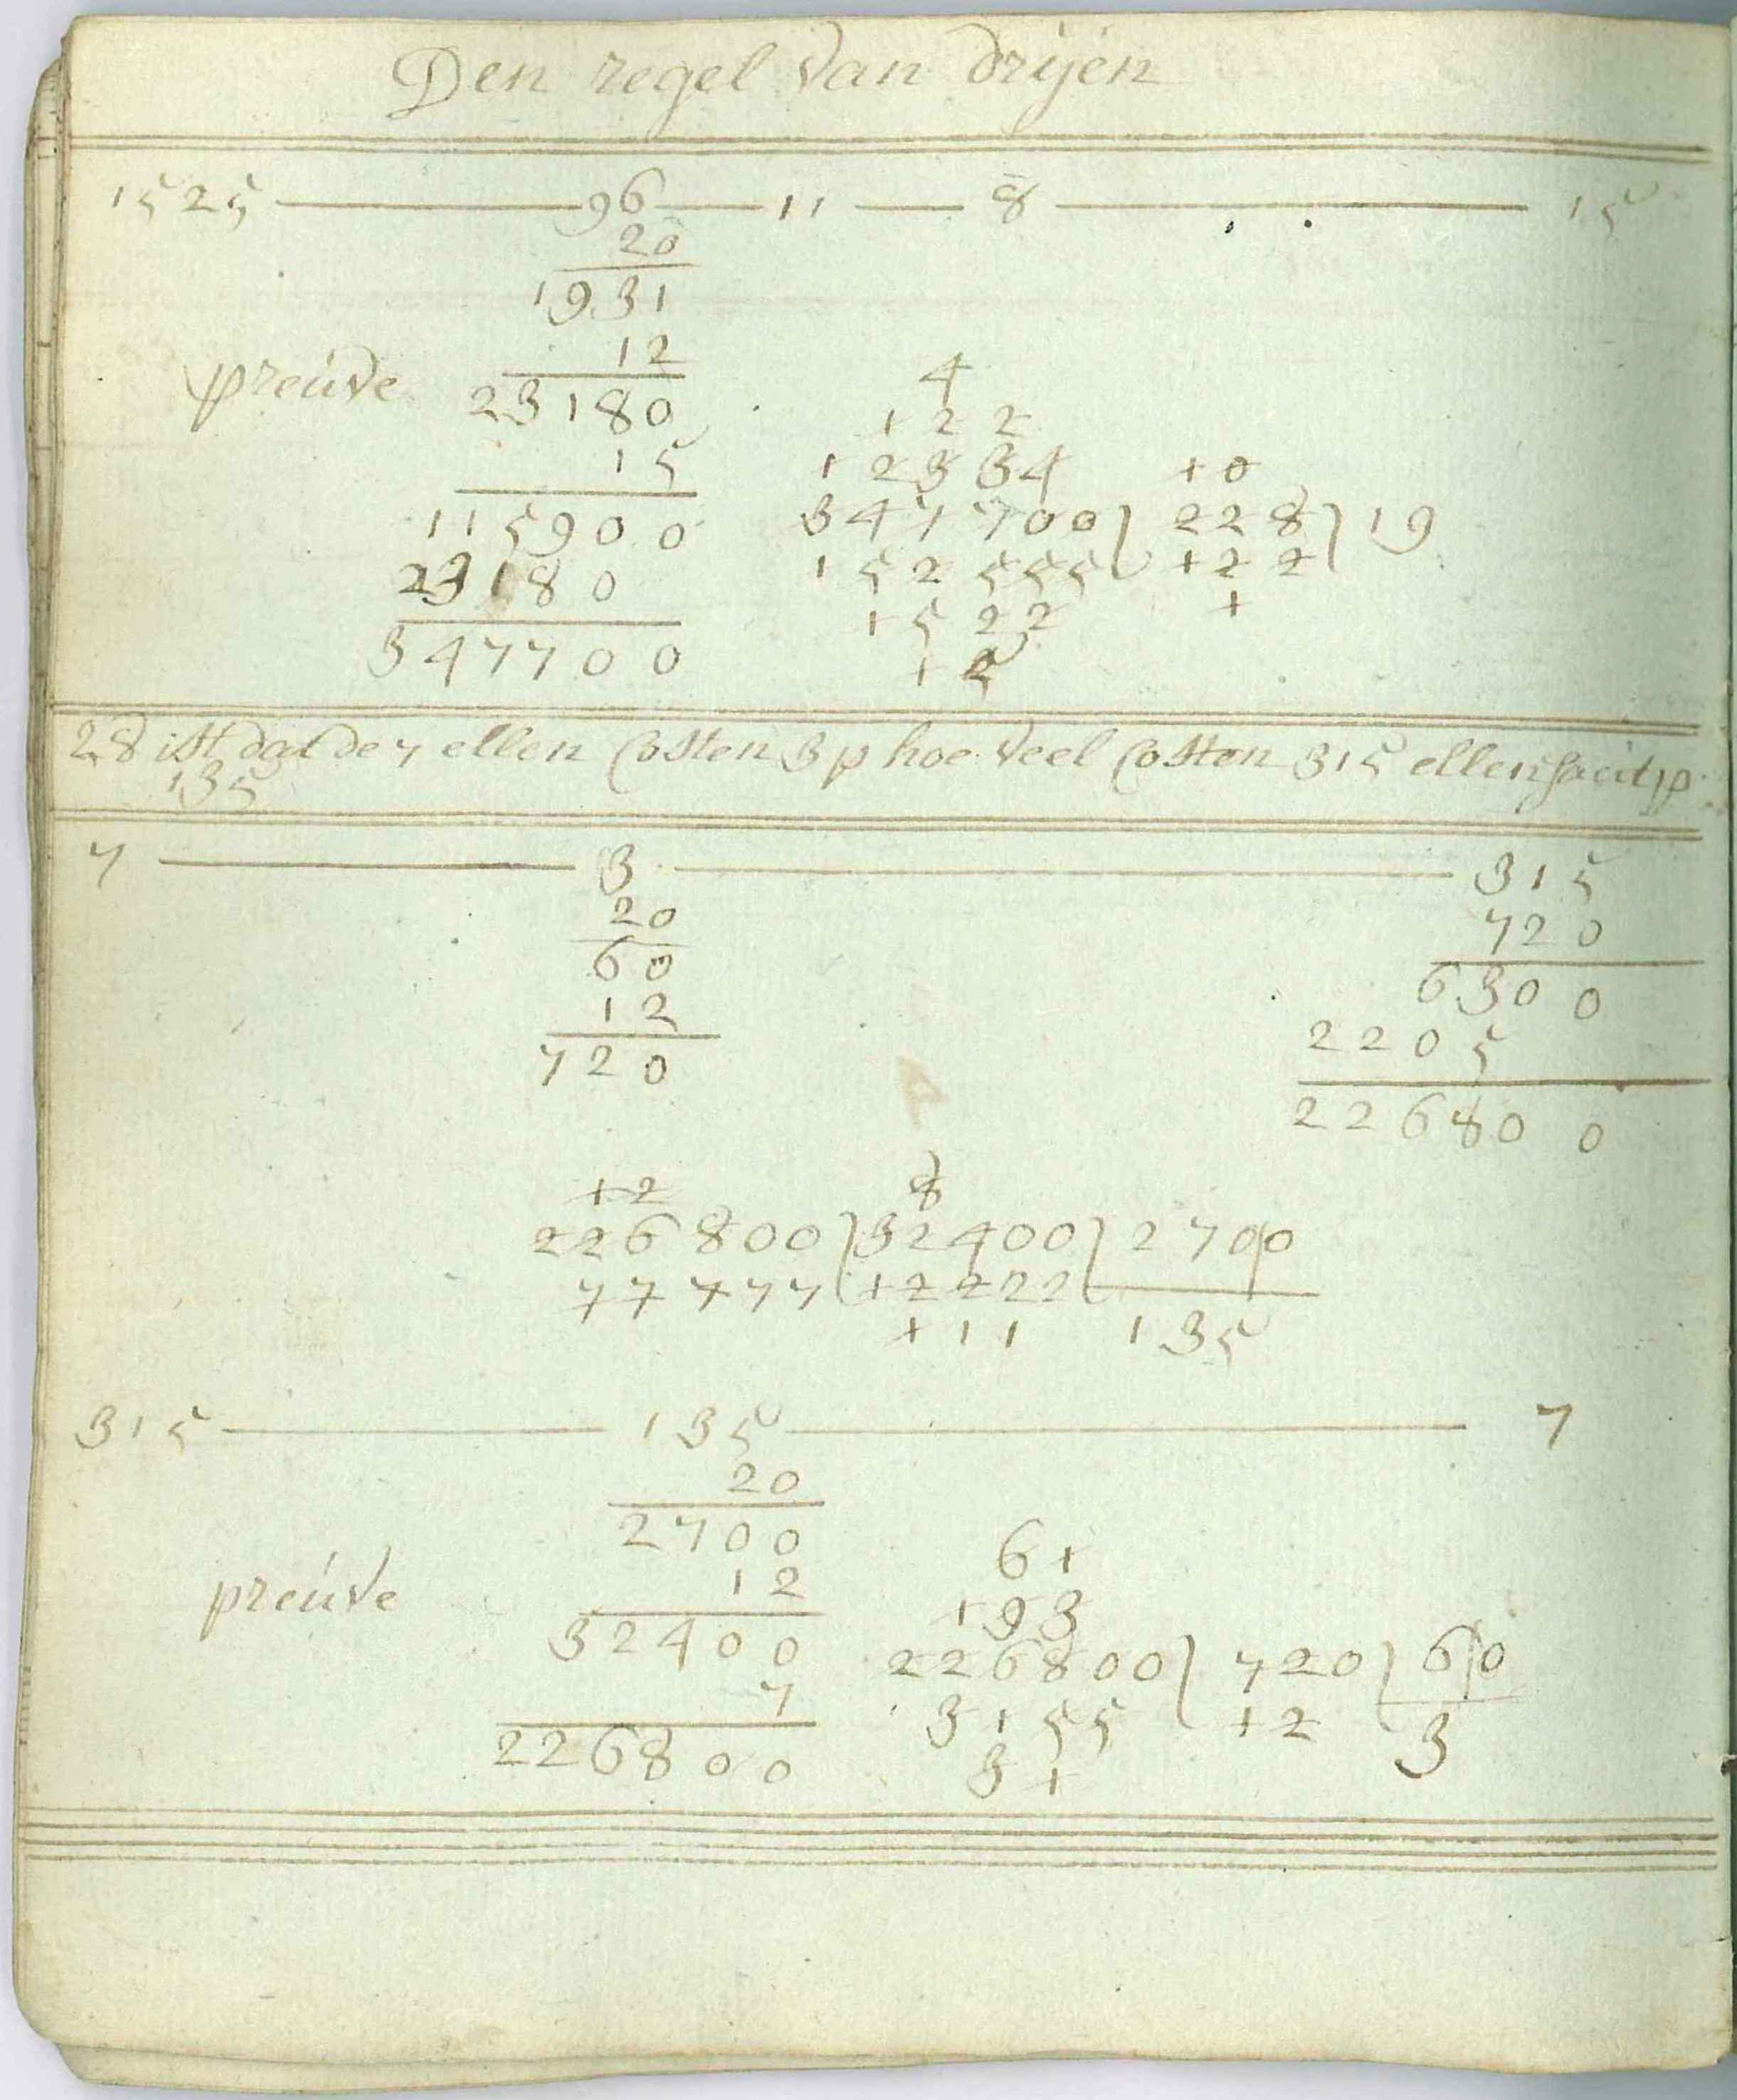 Den regel van drijen
1525 96 11 8 15
20
1931
12
preuve 23180
15
115900
23180
347700
4
122
12334 10
347700) 228) 19
152555 122
1522 1
12
28 ist dat de 7 ellen Costen 3 p hoe veel Costen 315 ellen facit p
135
7 3 315
20
60
12
720
720
6300
2205
226800
12 8
226800) 32400) 2700
77777 12222
111 135
315 135 7
20
2700
12
preuve 32400
7
226800
61
193
226800) 720) 60
3155 12 3
31